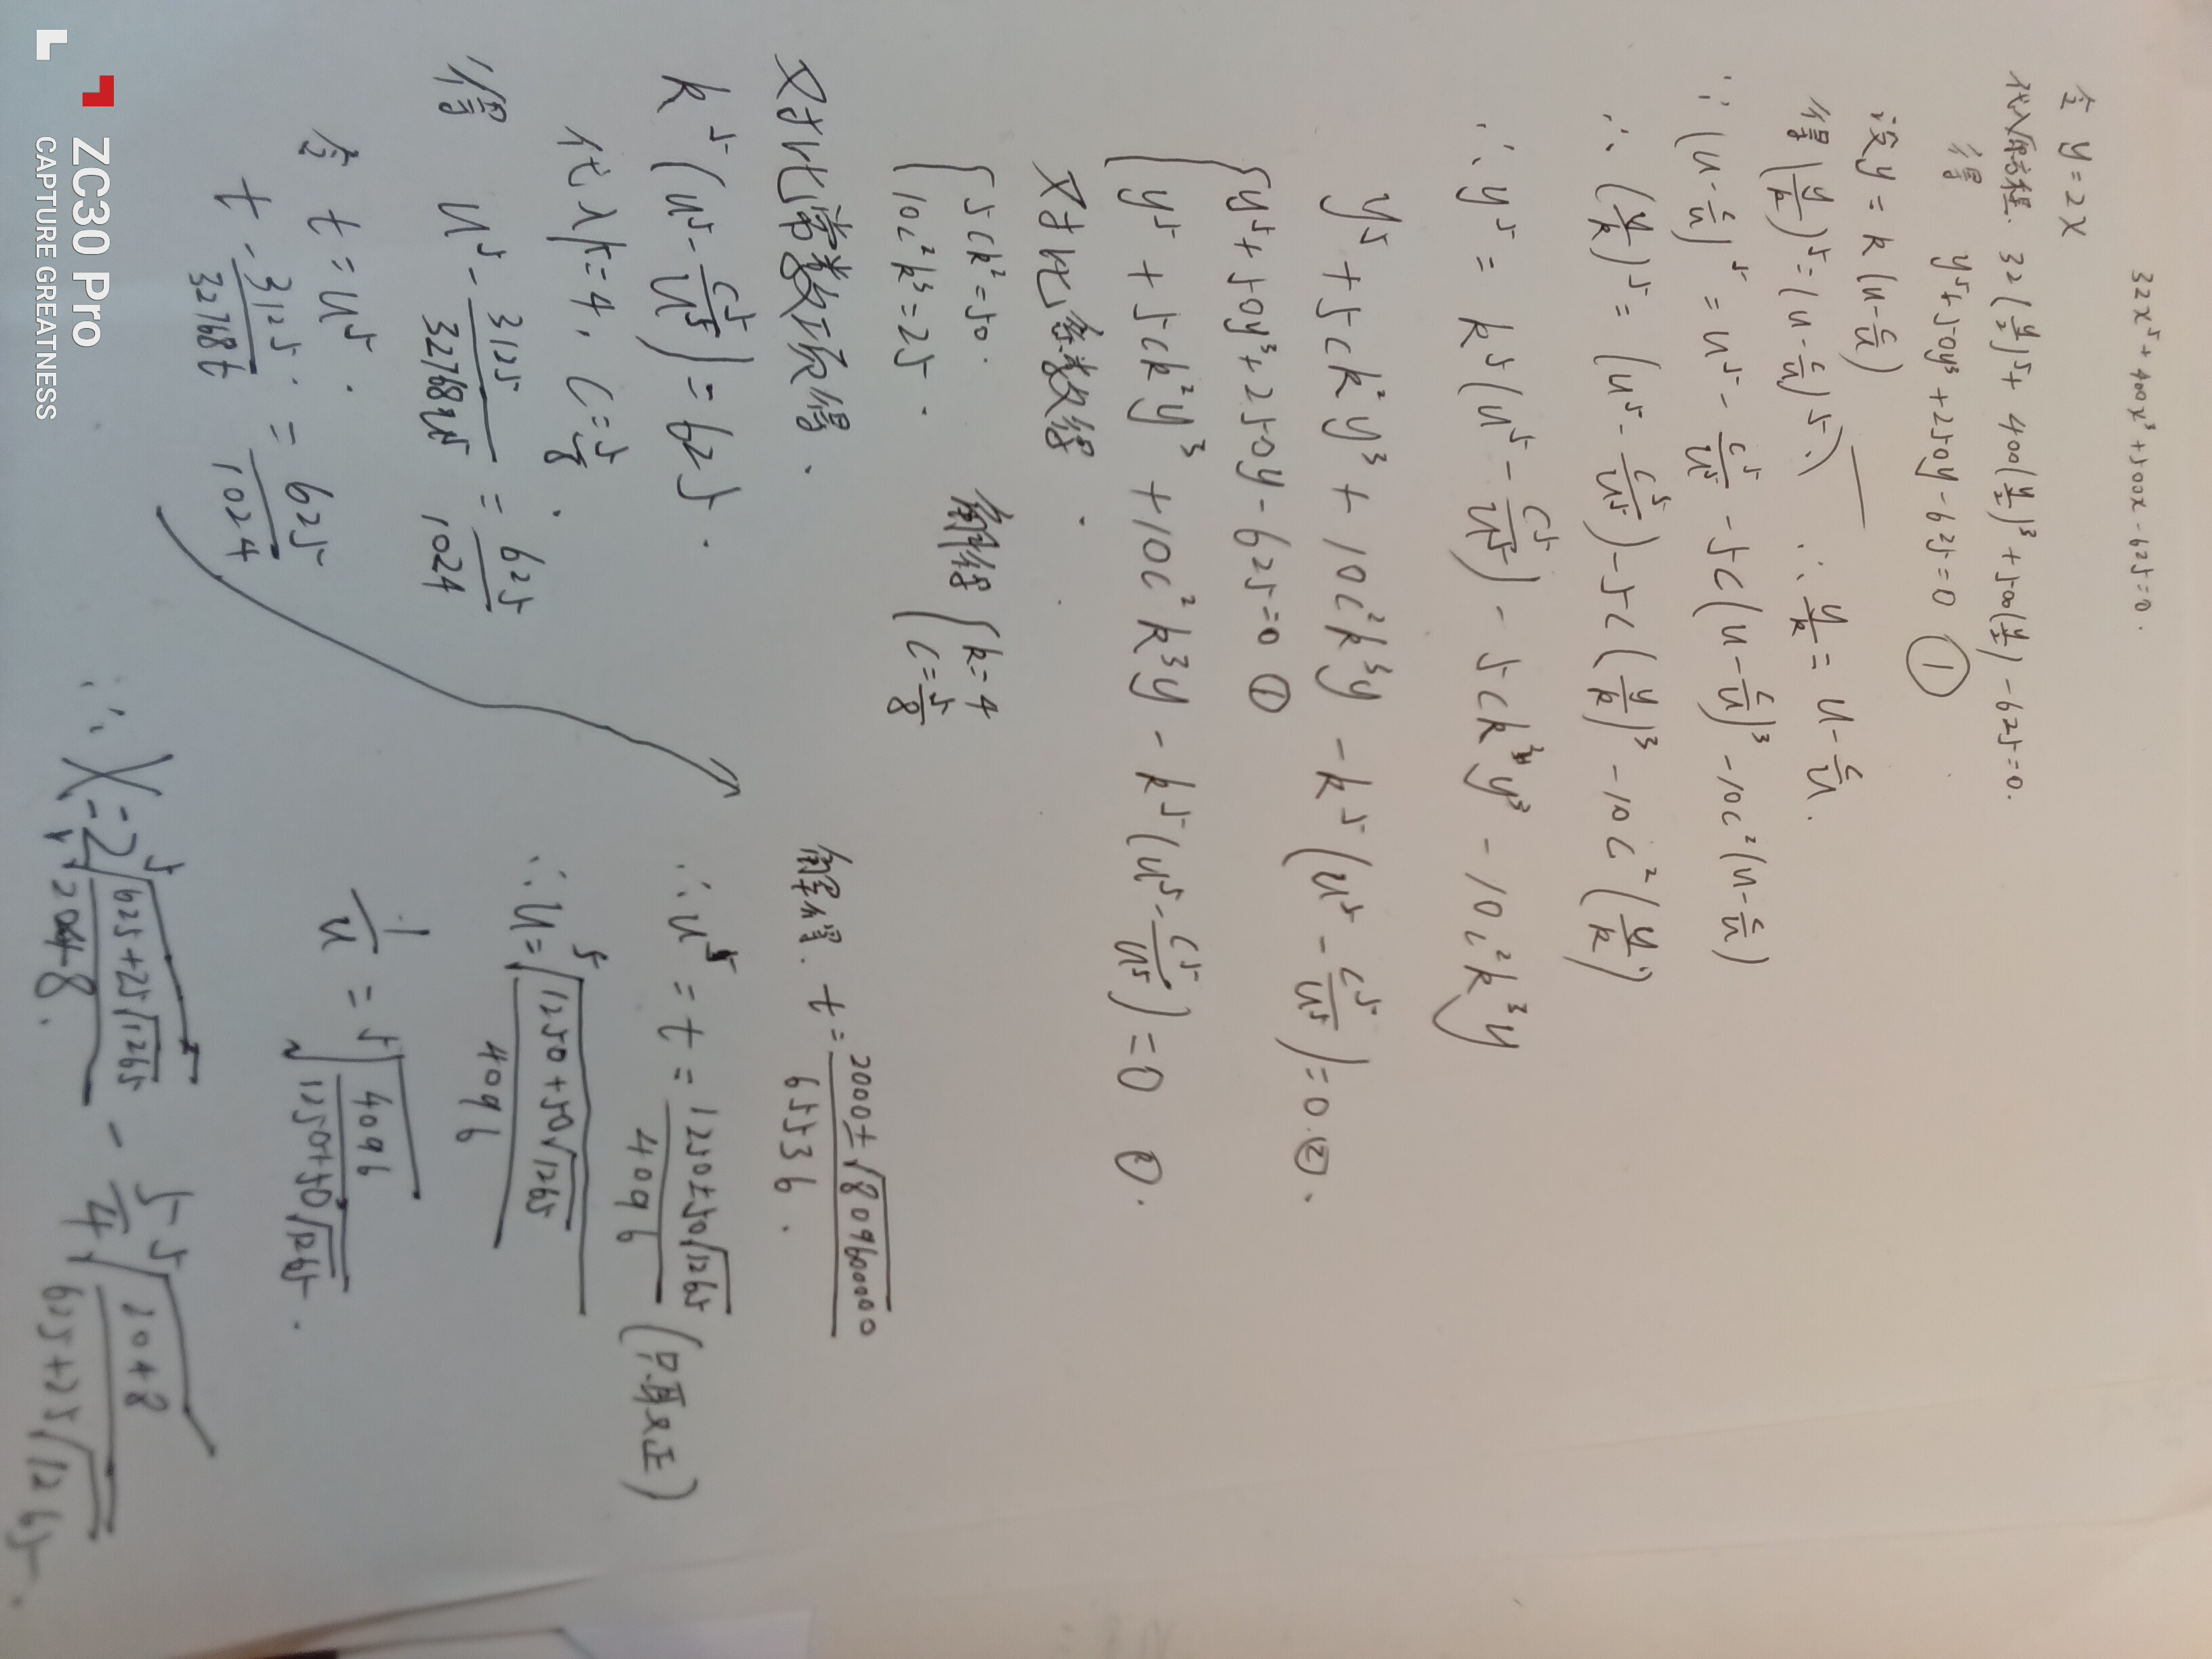 32x⁵+400x³+500x-625=0.
令 y=2x
代入原方程. 32(y/2)⁵+400(y/2)³+500(y/2)-625=0.
得 y⁵+50y³+250y-625=0 ①
设y=k(u-c/u) ∴ y/k=u-c/u.
得(y/k)⁵=(u-c/u)⁵.
∵(u-c/u)⁵=u⁵-c⁵/u⁵-5c(u-c/u)³-10c²(u-c/u)
∴(y/k)⁵=(u⁵-c⁵/u⁵)-5c(y/k)³-10c²(y/k)
∴y⁵=k⁵(u⁵-c⁵/u⁵)-5ck²y³-10c²k³y
y⁵+5ck²y³+10c²k³y-k⁵(u⁵-c⁵/u⁵)=0.②.
{y⁵+50y³+250y-625=0 ①
y⁵+5ck²y³+10c²k³y-k⁵(u⁵-c⁵/u⁵)=0 ②.
对比系数得.
{5ck²=50.
10c²k³=25.
解得{k=4
c=5/8
对比常数项得.
k⁵(u⁵-c⁵/u⁵)=625.
代入k=4,c=5/8.
得 u⁵-3125/32768u⁵=625/1024
令 t=u⁵.
t-3125/32768t=625/1024
解得. t=(2000±√809600000)/65536.
∴u⁵=t=(1250±50√1265)/4096 (只取正)
∴u=⁵√((1250+50√1265)/4096)
1/u=⁵√(4096/(1250+50√1265)).
∴X=2⁵√((625+25√1265)/2048)-5/4⁵√(2048/(625+25√1265)).
ZC30 Pro
CAPTURE GREATNESS